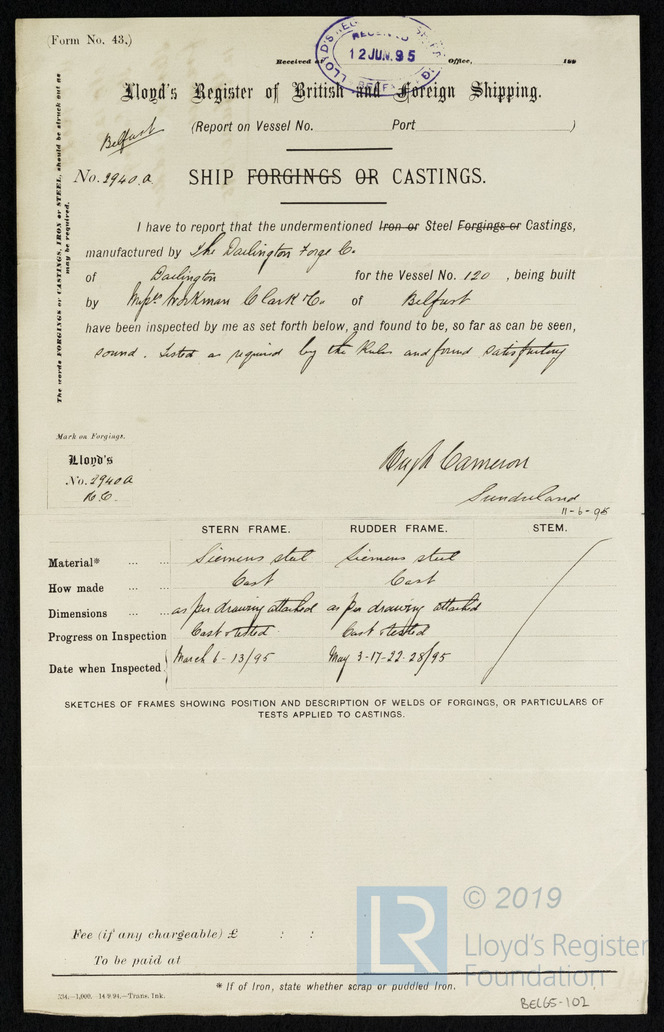 (Form No. 43.)
LLOYD'S REG SHIPPING
RECEIVED
12 JUN. 95
BELFAST
Received at Office, 189
Lloyd's Register of British and Foreign Shipping.
Belfast
(Report on Vessel No. Port )
No. 2940.a SHIP FORGINGS OR CASTINGS.
The words FORGINGS or CASTINGS, IRON or STEEL, should be struck out as
may be required.
I have to report that the undermentioned Iron or Steel Forgings or Castings,
manufactured by The Darlington Forge Co.
of Darlington for the Vessel No. 120, being built
by Messrs Workman Clark & Co. of Belfast
have been inspected by me as set forth below, and found to be, so far as can be seen,
sound. Tested as required by the Rules and found satisfactory
Mark on Forgings.
Lloyd's
No. 2940a
H.C.
Hugh Cameron
Sunderland
11-6-95
STERN FRAME. RUDDER FRAME. STEM.
Material* ... ... Siemens steel Siemens steel
How made ... ... Cast Cast
Dimensions ... ... as per drawing attached as per drawing attached
Progress on Inspection Cast & tested. Cast & tested
Date when Inspected March 6-13/95 May 3-17-22-28/95
SKETCHES OF FRAMES SHOWING POSITION AND DESCRIPTION OF WELDS OF FORGINGS, OR PARTICULARS OF
TESTS APPLIED TO CASTINGS.
Fee (if any chargeable) £ : :
To be paid at
* If of Iron, state whether scrap or puddled Iron.
534.—1,000. 14.9.94.—Trans. Ink.
BEL65-102
LR
© 2019
Lloyd's Register
Foundation